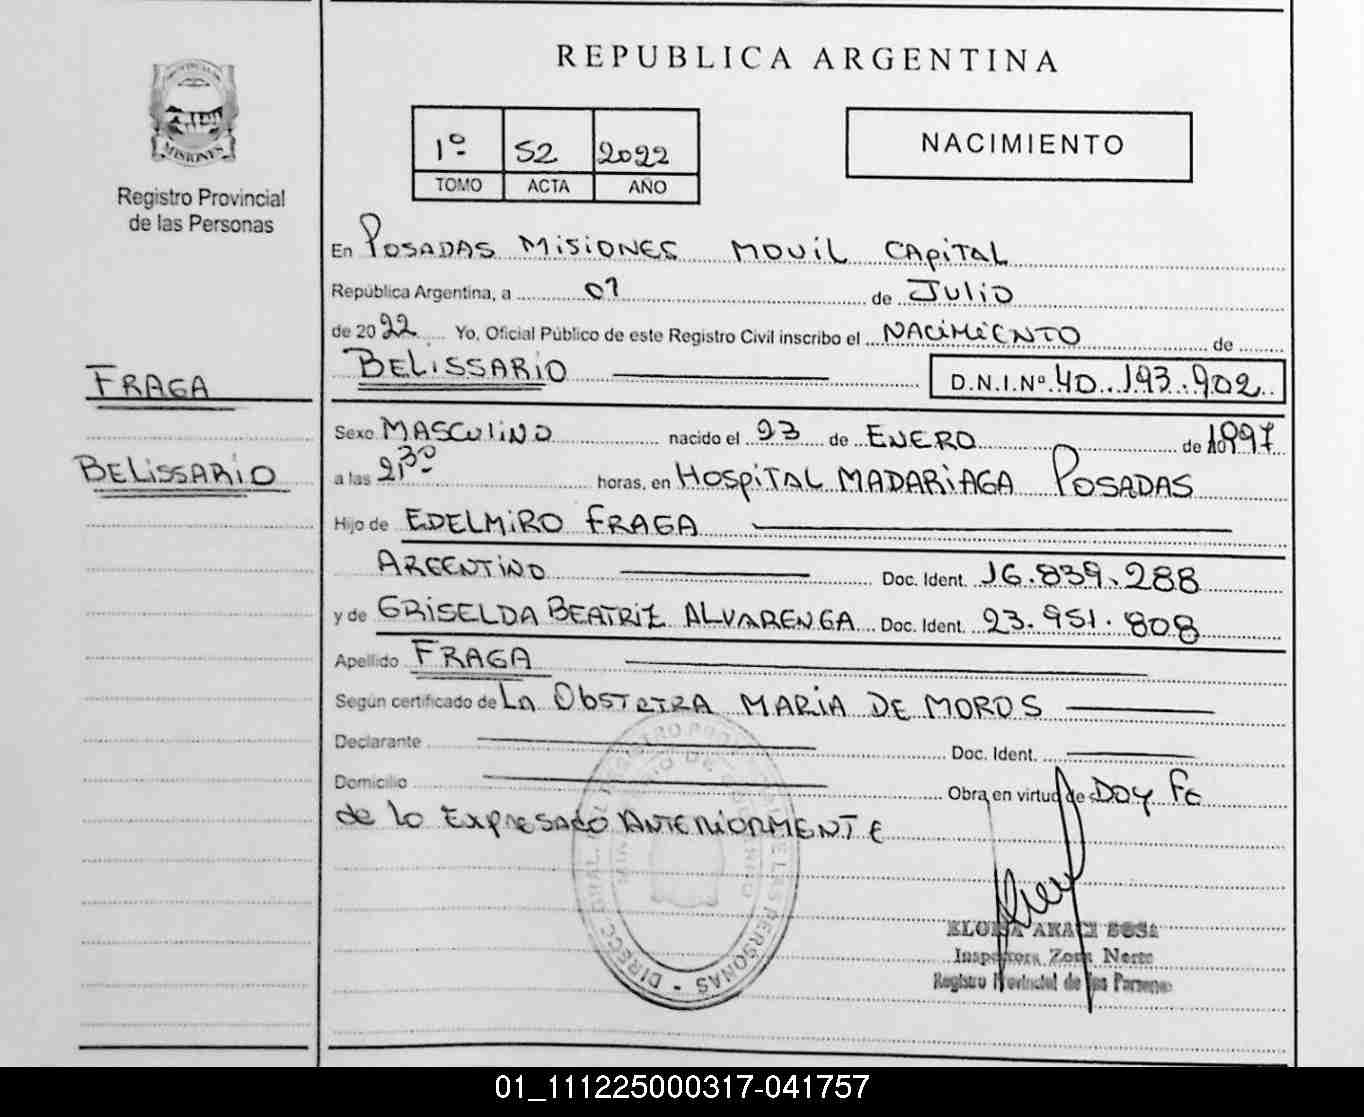 REPUBLICA ARGENTINA
PROVINCIA DE
MISIONES
Registro Provincial
de las Personas
1º 52 2022
TOMO ACTA AÑO
NACIMIENTO
En POSADAS MISIONES MOVIL CAPITAL
República Argentina, a 01 de JULIO
de 2022 Yo, Oficial Público de este Registro Civil inscribo el NACIMIENTO de
BELISSARIO D.N.I.Nº 40.193.902
FRAGA
BELISSARIO
Sexo MASCULINO nacido el 23 de ENERO de 1997
a las 21,30 horas, en HOSPITAL MADARIAGA POSADAS
Hijo de EDELMIRO FRAGA
ARGENTINO Doc. Ident. 16.839.288
y de GRISELDA BEATRIZ ALVARENGA Doc. Ident. 23.951.808
Apellido FRAGA
Según certificado de LA MARIA DE MOROS
Declarante Doc. Ident.
Domicilio Obra en virtud de DOY FE
de lo EXPRESADO ANTERIORMENTE
DIRECC. GRAL. DEL REGISTRO PROVINCIAL DE LAS PERSONAS
MINISTERIO DE GOBIERNO
ELOISA ARACI SOSA
Inspectora Zona Norte
Registro Provincial de las Personas
01_111225000317-041757